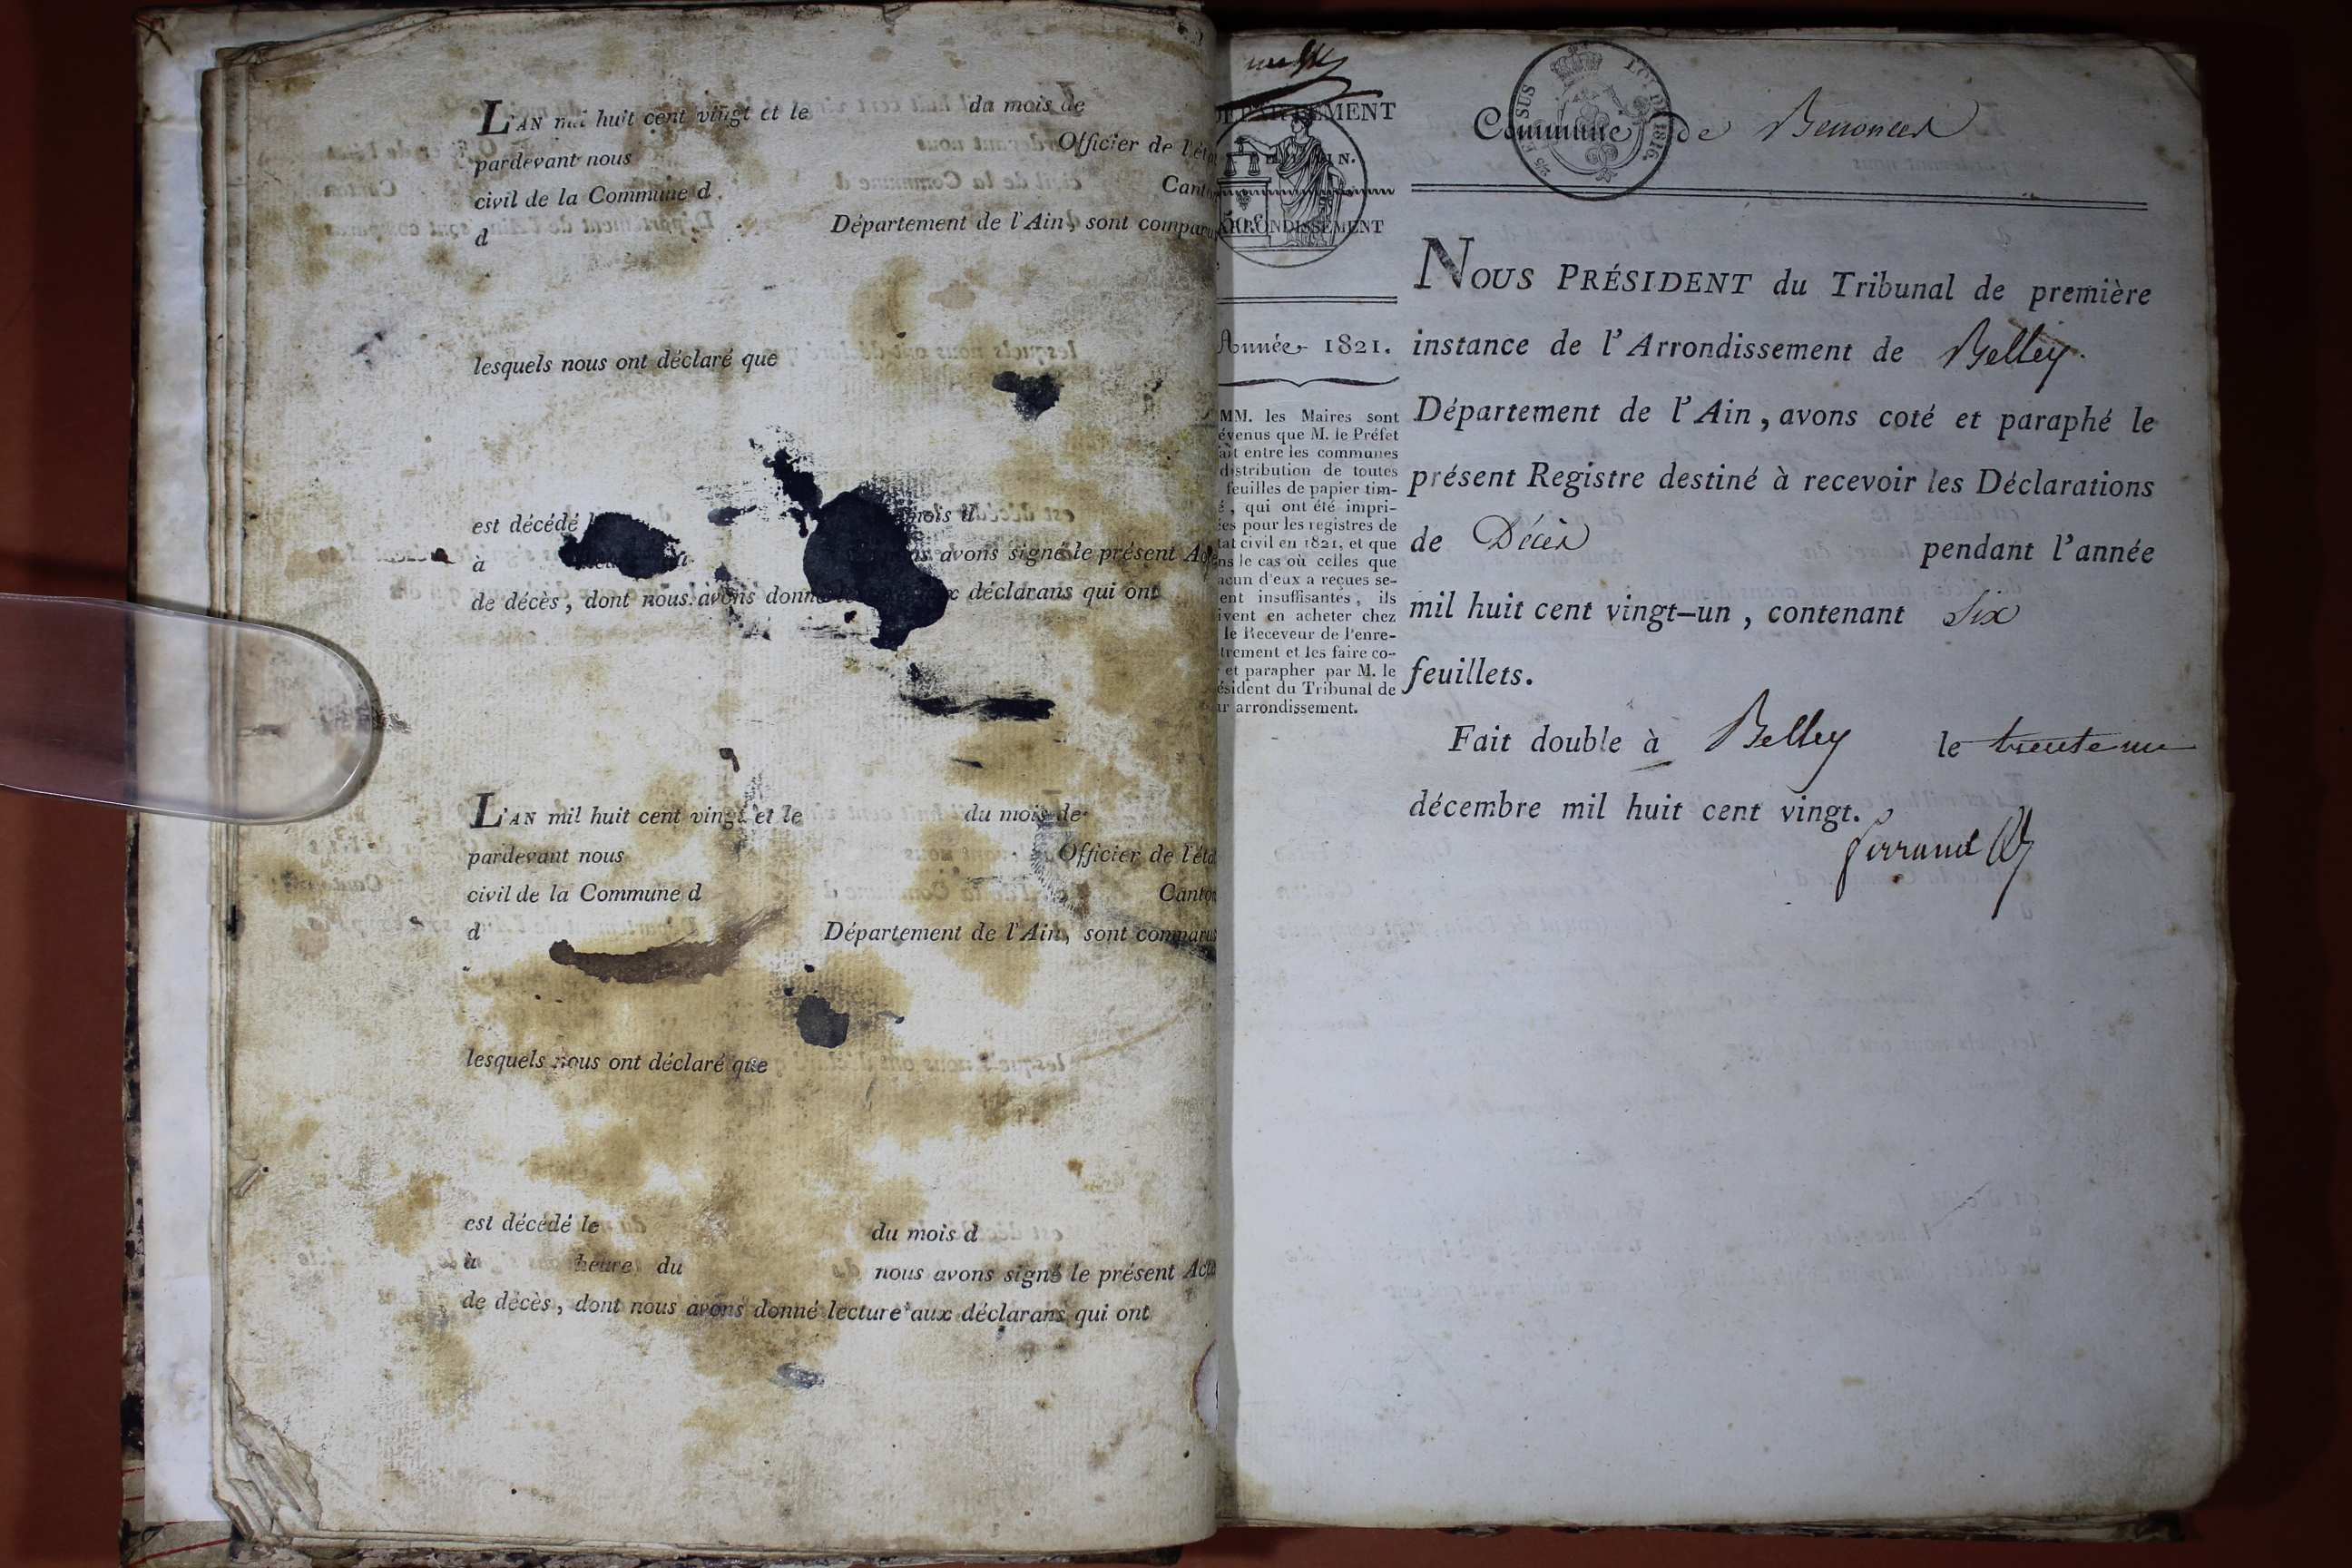 L'AN mil huit cent vingt et le du mois de
pardevant nous Officier de l'état
civil de la Commune d Canton
d Département de l'Ain, sont comparus
lesquels nous ont déclaré que
est décédé mois d
à avons signé le présent Acte
de décès, dont nous avons donné déclarans qui ont
L'AN mil huit cent vingt et le du mois de
pardevant nous Officier de l'état
civil de la Commune d Canton
d Département de l'Ain, sont comparus
lesquels nous ont déclaré que
est décédé le du mois d
à heure du nous avons signé le présent Acte
de décès, dont nous avons donné lecture aux déclarans qui ont
DÉPARTEMENT
IN.
50 C
ARRONDISSEMENT
Année 1821.
MM. les Maires sont
évenus que M. le Préfet
ait entre les communes
distribution de toutes
feuilles de papier tim-
é, qui ont été impri-
ées pour les registres de
tat civil en 1821, et que
ns le cas où celles que
acun d'eux a reçues se-
ent insuffisantes, ils
ivent en acheter chez
le Receveur de l'enre-
trement et les faire co-
et parapher par M. le
ésident du Tribunal de
ur arrondissement.
Commune de Benonces
LOI DE 1816.
NOUS PRÉSIDENT du Tribunal de première
instance de l'Arrondissement de Belley
Département de l'Ain, avons coté et paraphé le
présent Registre destiné à recevoir les Déclarations
de Décès pendant l'année
mil huit cent vingt-un, contenant Six
feuillets.
Fait double à Belley le trente un
décembre mil huit cent vingt.